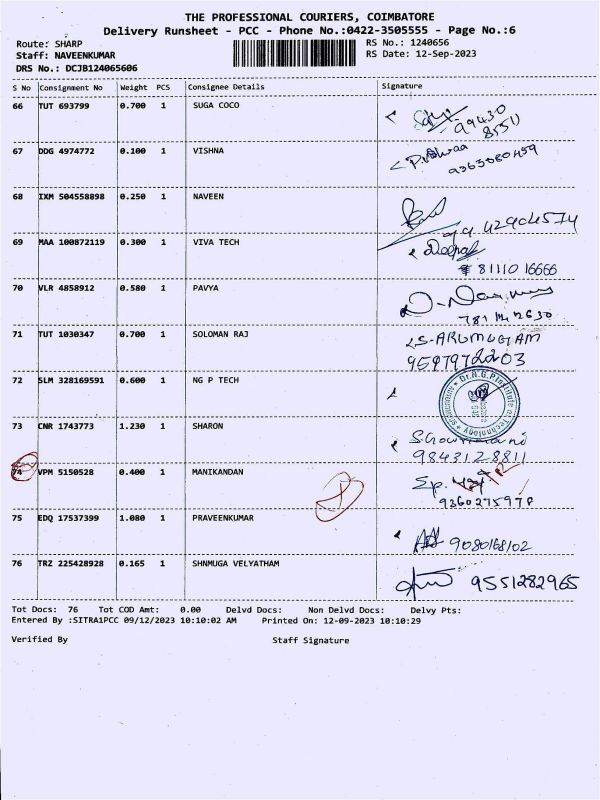 THE PROFESSIONAL COURIERS, COIMBATORE
Delivery Runsheet - PCC - Phone No.:0422-3505555 - Page No.:6
Route: SHARP
RS No.: 1240656
Staff: NAVEENKUMAR
RS Date: 12-Sep-2023
DRS No.: DCJB124065606
S No Consignment No Weight PCS Consignee Details Signature
66 TUT 693799 0.700 1 SUGA COCO
99430
8551
67 DDG 4974772 0.100 1 VISHNA
68 IXM 504558898 0.250 1 NAVEEN
69 MAA 100872119 0.300 1 VIVA TECH
Deepak
81110 16666
70 VLR 4858912 0.580 1 PAVYA
71 TUT 1030347 0.700 1 SOLOMAN RAJ
S-ARUMUGAM
9597972203
72 SLM 328169591 0.600 1 NG P TECH
Dr.N.G.P.Institute of Technology
73 CNR 1743773 1.230 1 SHARON
9843128811
74 VPM 5150528 0.400 1 MANIKANDAN
Sp.
75 EDQ 17537399 1.080 1 PRAVEENKUMAR
9080168102
76 TRZ 225428928 0.165 1 SHNMUGA VELYATHAM
9551282965
Tot Docs: 76 Tot COD Amt: 0.00 Delvd Docs: Non Delvd Docs: Delvy Pts:
Entered By :SITRA1PCC 09/12/2023 10:10:02 AM Printed On: 12-09-2023 10:10:29
Verified By Staff Signature